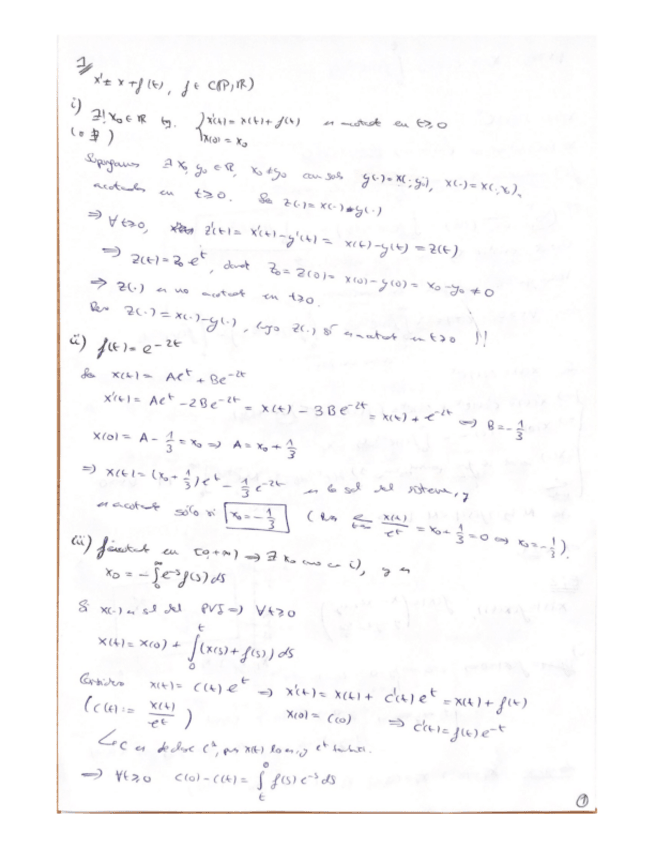 1
x' = x + f(t), f ∈ C(ℝ, ℝ)
i) ∃! x₀ ∈ ℝ tq. { x'(t) = x(t) + f(t) es acotat en t ≥ 0
(o ∄) x(0) = x₀
Supongamos ∃ x₀, y₀ ∈ ℝ, x₀ ≠ y₀ con sol y(·) = x(·, y₀), x(·) = x(·, x₀),
acotadas en t ≥ 0. Sea z(·) = x(·) - y(·)
⇒ ∀ t ≥ 0, z'(t) = x'(t) - y'(t) = x(t) - y(t) = z(t)
⇒ z(t) = z₀ eᵗ, donat z₀ = z(0) = x(0) - y(0) = x₀ - y₀ ≠ 0
⇒ z(·) es no acotat en t ≥ 0.
Pero z(·) = x(·) - y(·), luego z(·) sí acotat en t ≥ 0 !!
ii) f(t) = e^(-2t)
Sea x(t) = Aeᵗ + Be^(-2t)
x'(t) = Aeᵗ - 2Be^(-2t) = x(t) - 3Be^(-2t) = x(t) + e^(-2t) ⇔ B = -1/3
x(0) = A - 1/3 = x₀ ⇒ A = x₀ + 1/3
⇒ x(t) = (x₀ + 1/3)eᵗ - 1/3 e^(-2t) es la sol del sistema, y
es acotat sólo si x₀ = -1/3 (x(t)/eᵗ = x₀ + 1/3 = 0 ⇔ x₀ = -1/3).
iii) f acotat en [0, +∞) ⇒ ∃ x₀ como en i), y es
x₀ = -∫₀^∞ e^(-s) f(s) ds
Si x(·) es sol del PVI ⇒ ∀ t ≥ 0
x(t) = x(0) + ∫₀ᵗ (x(s) + f(s)) ds
Considero x(t) = c(t) eᵗ ⇒ x'(t) = x(t) + c'(t) eᵗ = x(t) + f(t)
(c(t) := x(t)/eᵗ) x(0) = c(0) ⇒ c'(t) = f(t) e^(-t)
c es de clase C¹, pues x(t) lo es, y eᵗ también.
⇒ ∀ t ≥ 0 c(0) - c(t) = ∫ₜ⁰ f(s) e^(-s) ds
1